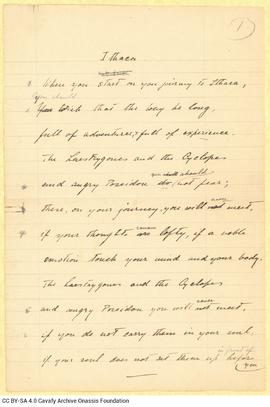 1
Ithaca
When you start on you jurney to Ithaca,
you should
wish that the way be long,
full of adventures, full of experience.
The Laestrygones and the Cyclopes
you should
and angry Poseidon do not fear;
never
there, on your journey, you will not meet,
remain
if your thoughts are lofty, if a noble
emotion touch your mind and your body.
The Laestrygones and the Cyclopes
never
and angry Poseidon you will not meet,
if you do not carry them in your soul,
in front of
if your soul does not set them up before
you
CC BY-SA 4.0 Cavafy Archive Onassis Foundation